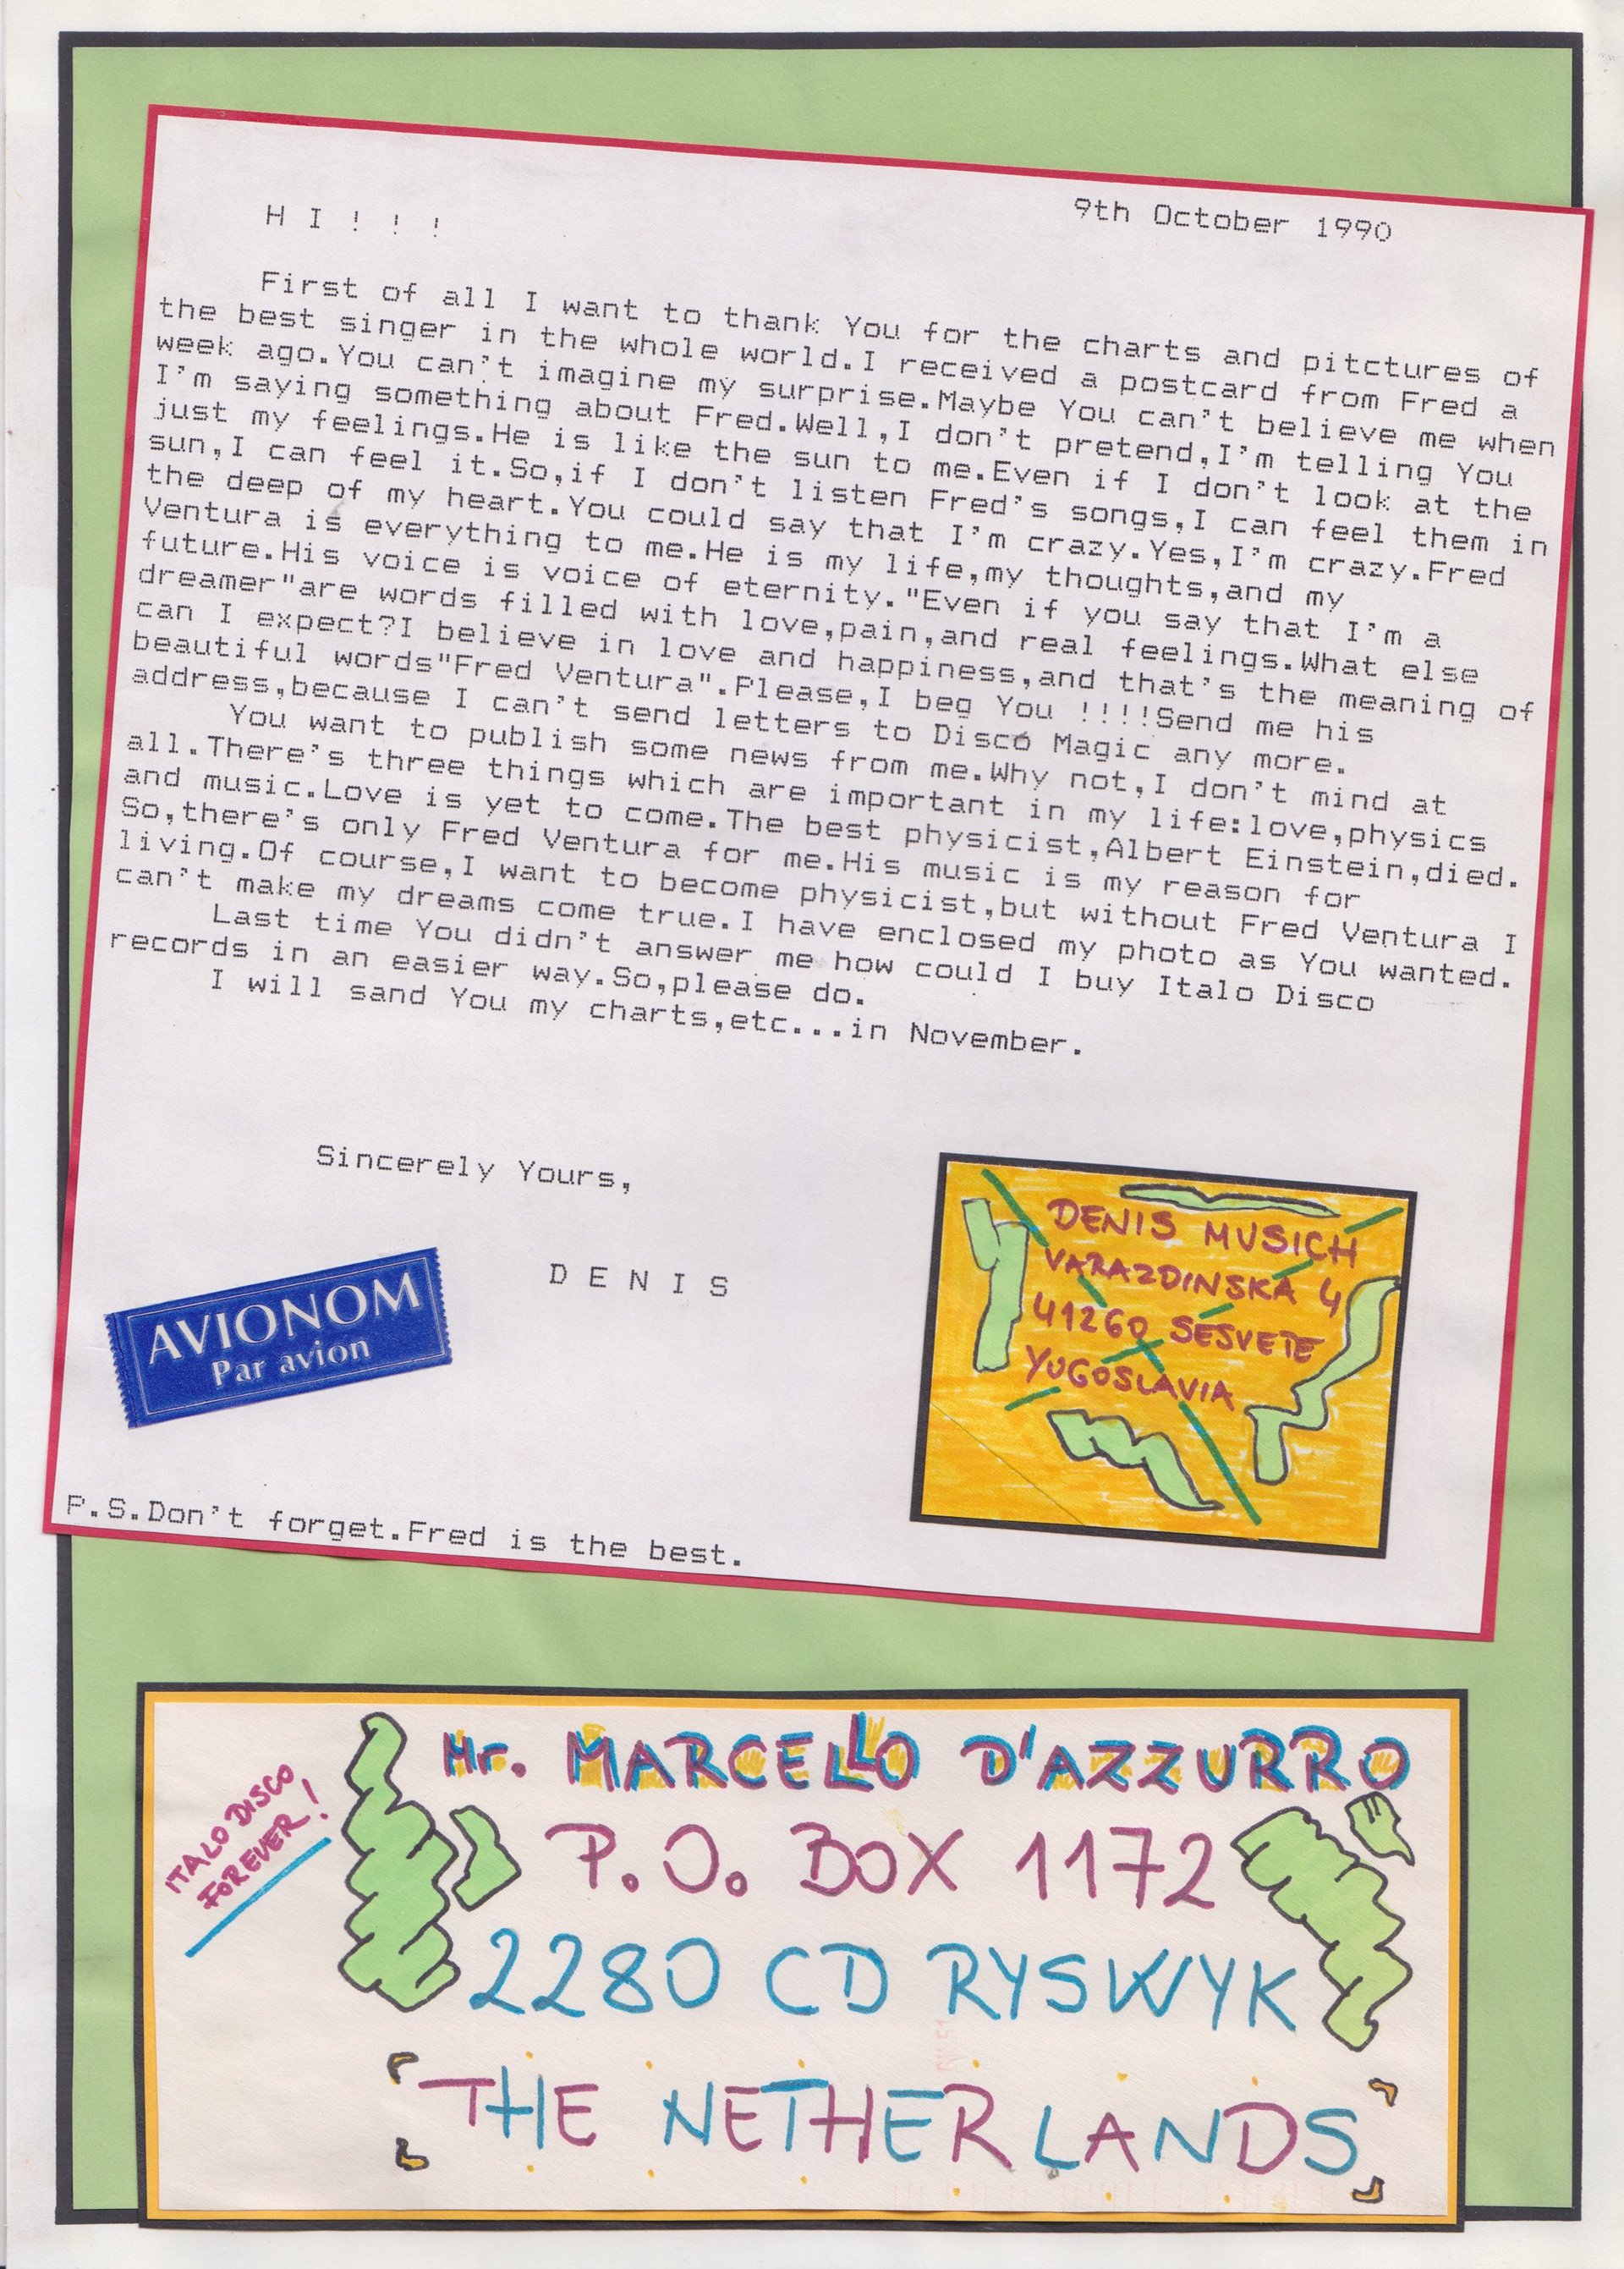 H I ! ! !
9th October 1990
First of all I want to thank You for the charts and pitctures of
the best singer in the whole world.I received a postcard from Fred a
week ago.You can't imagine my surprise.Maybe You can't believe me when
I'm saying something about Fred.Well,I don't pretend,I'm telling You
just my feelings.He is like the sun to me.Even if I don't look at the
sun,I can feel it.So,if I don't listen Fred's songs,I can feel them in
the deep of my heart.You could say that I'm crazy.Yes,I'm crazy.Fred
Ventura is everything to me.He is my life,my thoughts,and my
future.His voice is voice of eternity."Even if you say that I'm a
dreamer"are words filled with love,pain,and real feelings.What else
can I expect?I believe in love and happiness,and that's the meaning of
beautiful words"Fred Ventura".Please,I beg You !!!!Send me his
address,because I can't send letters to Disco Magic any more.
You want to publish some news from me.Why not,I don't mind at
all.There's three things which are important in my life:love,physics
and music.Love is yet to come.The best physicist,Albert Einstein,died.
So,there's only Fred Ventura for me.His music is my reason for
living.Of course,I want to become physicist,but without Fred Ventura I
can't make my dreams come true.I have enclosed my photo as You wanted.
Last time You didn't answer me how could I buy Italo Disco
records in an easier way.So,please do.
I will sand You my charts,etc...in November.
Sincerely Yours,
D E N I S
AVIONOM
Par avion
DENIS MUSICH
VARAZDINSKA 4
41260 SESVETE
YUGOSLAVIA
P.S.Don't forget.Fred is the best.
ITALO DISCO
FOREVER!
Mr. MARCELLO D'AZZURRO
P.O. BOX 1172
2280 CD RYSWYK
THE NETHERLANDS